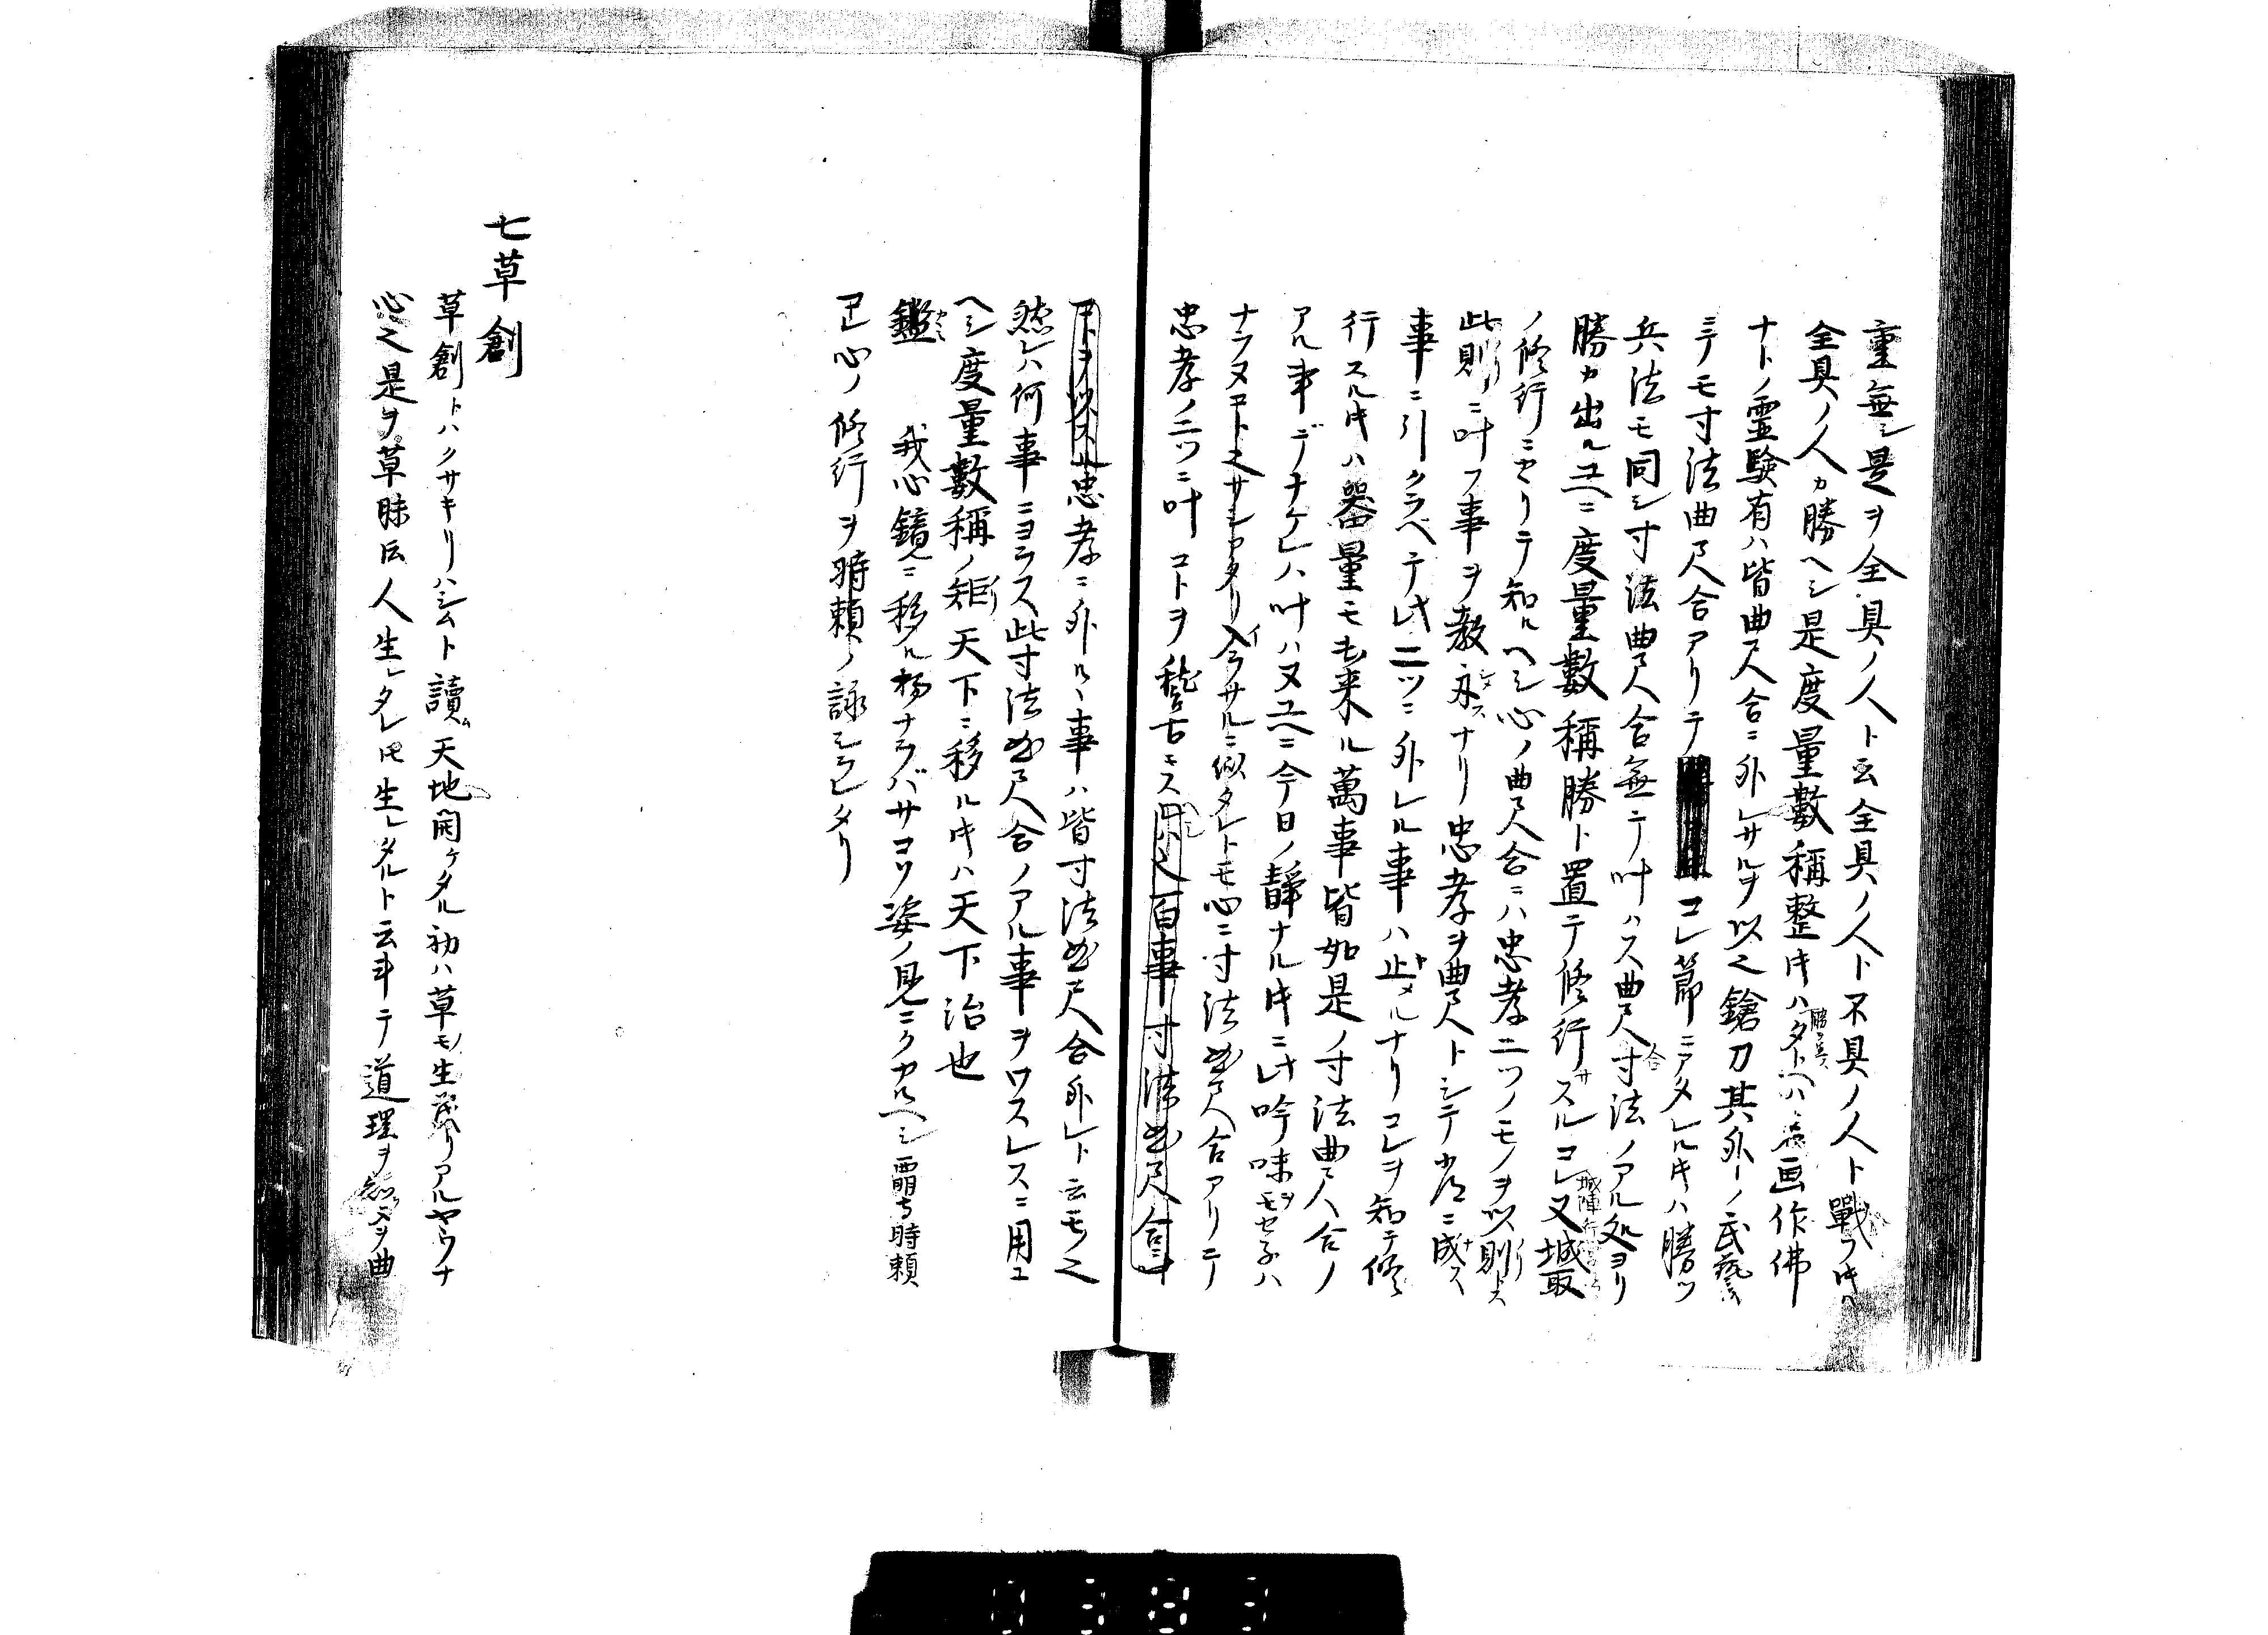 重無シ是ヲ全具ノ人ト云全具ノ人ト不具ノ人ト戰フ𪜈
全具ノ人カ勝ヘシ是度量數稱整キハタトヘハ画作佛
ナトノ靈験有ハ皆曲尺合ニ外レサルヲ以之鎗刀其外ノ武藝
ミテモ寸法曲尺合アリテコレ節ニアタレルキハ勝ツ
兵法モ同シ寸法曲尺合無テ叶ハス曲尺寸法ノアル処ヨリ
勝カ出ル故ニ度量數稱勝ト置テ修行サスルコレ又城取
ノ修行ニヤリテ知ルヘシ心ノ曲尺合ニハ忠孝二ツノモノヲ以則トス
此則ニ叶フ事ヲ教ナリ忠孝ヲ曲尺トシテ成ス
事ニ引クラヘテ此二ツニ外レル事ハ止メルナリコレヲ知テ修
行スルキハ器量モ出来ル萬事皆如是ノ寸法曲尺合ノ
アル事デナケレハ叶ハヌユヘニ今日ノ静ナルキニ此吟味ヲモセ子ハ
ナラヌコト之サシアタリ入ラサルニ似タレトモ心ニ寸法曲尺合アリテ
忠孝ノ二ツニ叶コトヲ稽古セス百事寸法曲尺合ニ
忠孝ニ外ルヽ事ハ皆寸法曲尺合外レト云モノ之
然レハ何事ニヨラス此寸法曲尺合ノアル事ヲワスレスニ用ユ
ヘシ度量數稱ノ矩天下ニ移ルキハ天下治也
鑑 我心鏡ニ移ル物ナラバサコソ姿ノ見ニクカルヘシ 西明寺時頼
正心ノ修行ヲ時頼ノ詠シラレタリ
七草創
草創トハクサキリハシムト讀ム天地開ケタル初ハ草モノ生茂リアルヤウナ
心之是ヲ草昧云人生レタレ𪜈生レタルト云斗テ道理ヲ